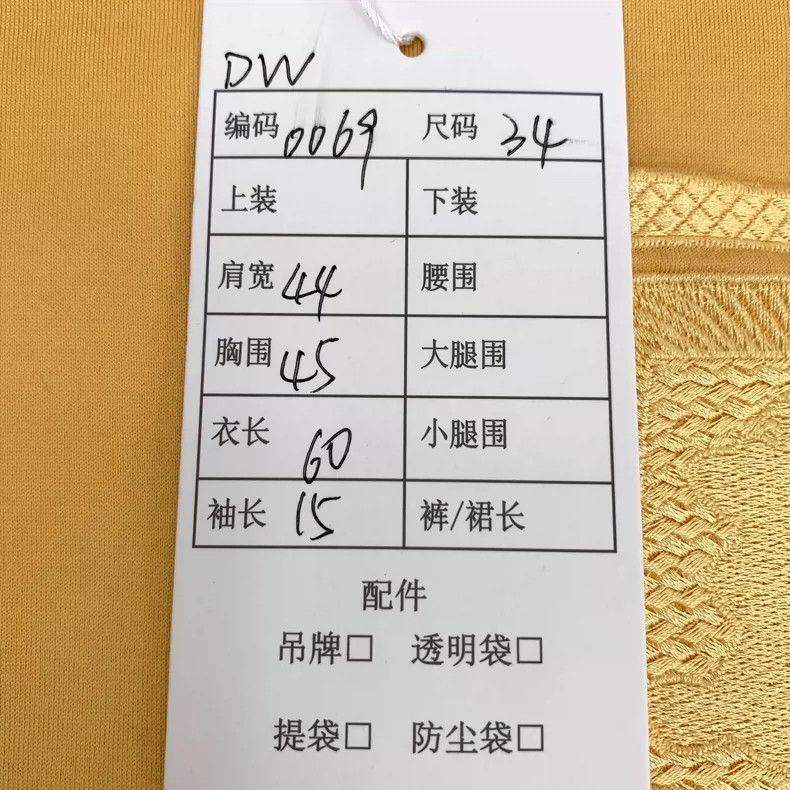 DW
编码 0069 尺码 34
上装 下装
肩宽 44 腰围
胸围 45 大腿围
衣长 60 小腿围
袖长 15 裤/裙长
配件
吊牌□ 透明袋□
提袋□ 防尘袋□